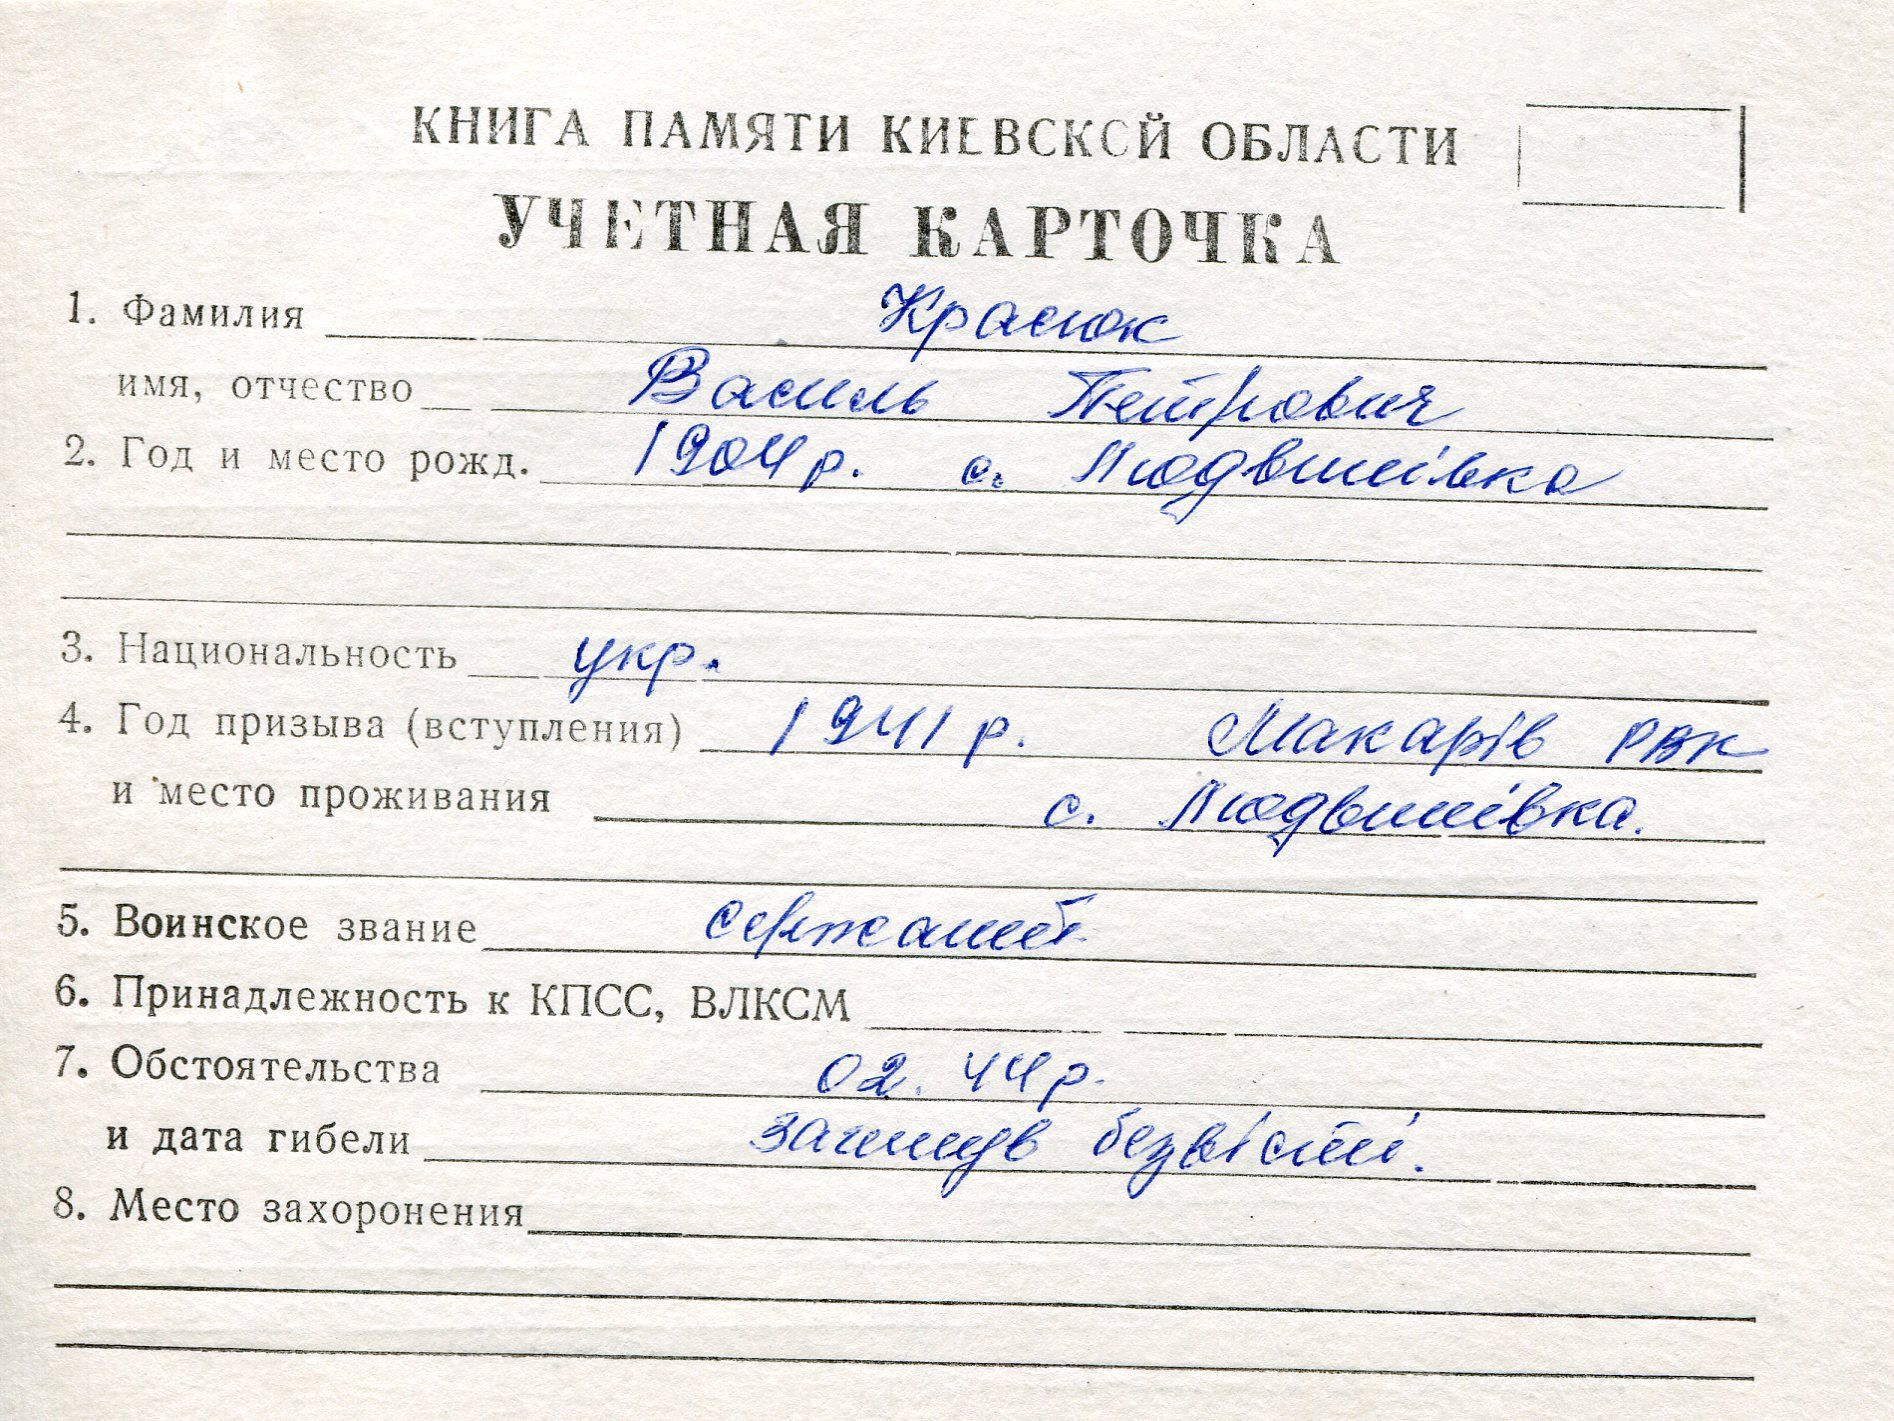 КНИГА ПАМЯТИ КИЕВСКОЙ ОБЛАСТИ
УЧЕТНАЯ КАРТОЧКА
1. Фамилия Красюк
имя, отчество Василь Петрович
2. Год и место рожд. 1904 р. с. Людвинівка
3. Национальность укр.
4. Год призыва (вступления) 1941 р. Макарів РВК
и место проживания с. Людвинівка.
5. Воинское звание сержант
6. Принадлежность к КПСС, ВЛКСМ
7. Обстоятельства 02. 44 р.
и дата гибели загинув безвісті.
8. Место захоронения